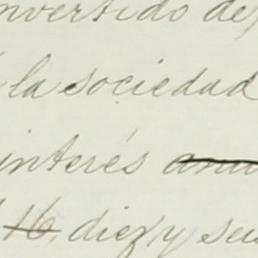 nvertido de
la sociedad
interés anu
16, diez y seis